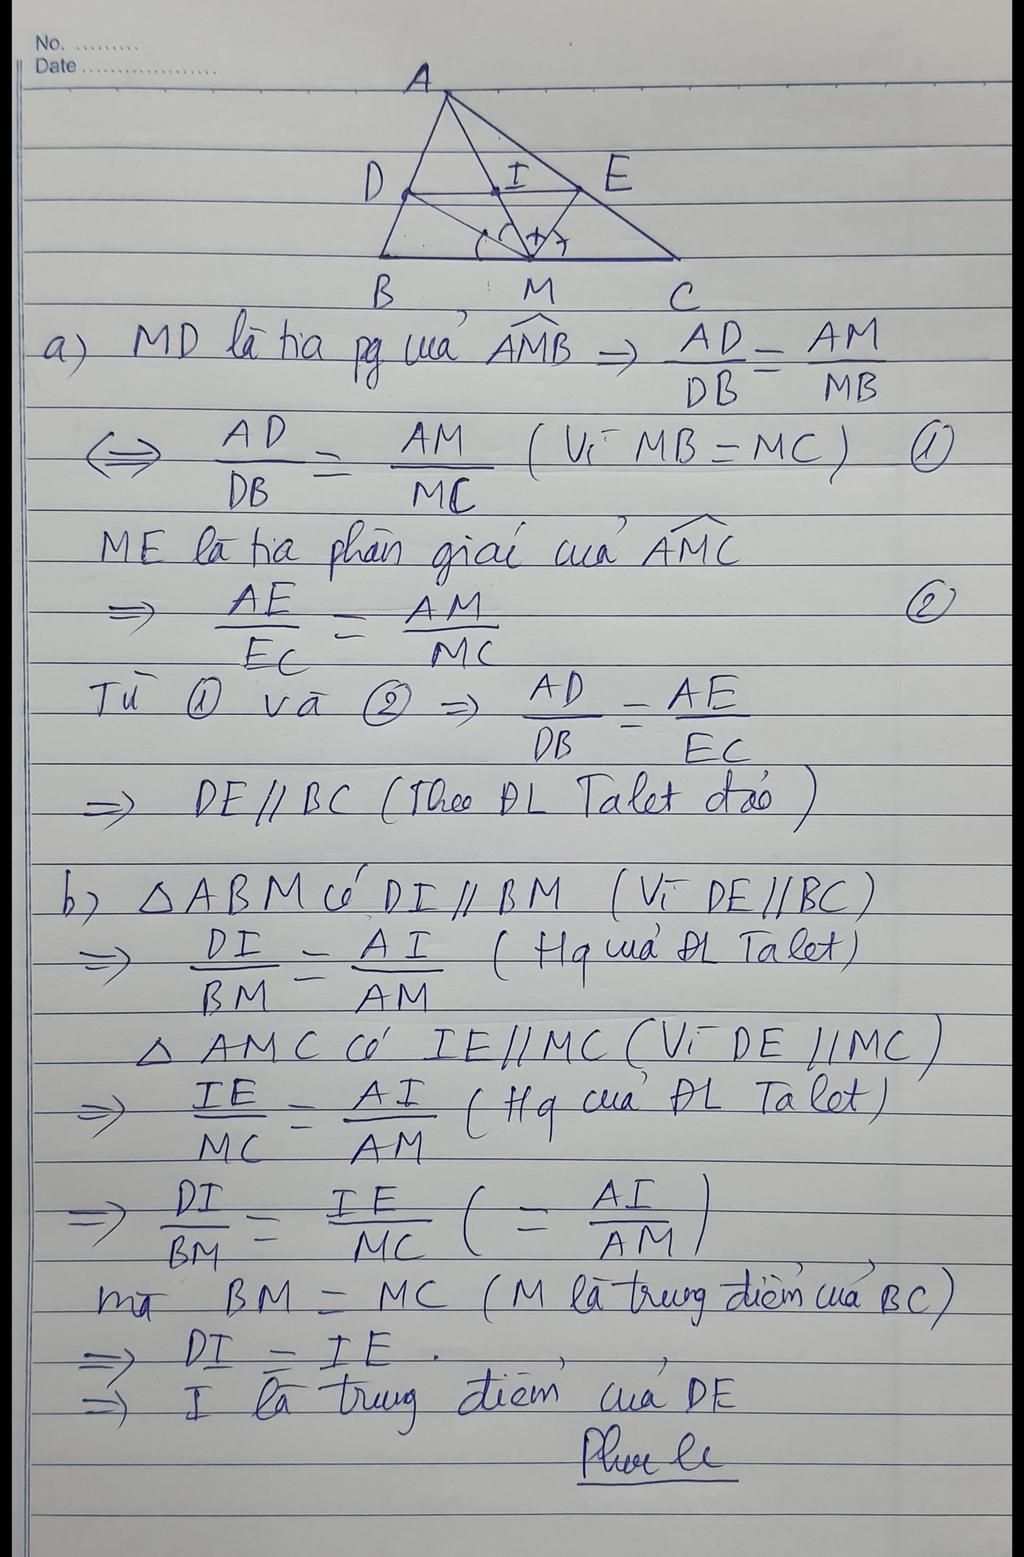 No. .........
Date ...................
A
D I E
B M C
a) MD là tia pg của AMB => AD/DB = AM/MB
<=> AD/DB = AM/MC (Vì MB = MC) ①
ME là tia phân giác của AMC
=> AE/EC = AM/MC ②
Từ ① và ② => AD/DB = AE/EC
=> DE // BC (Theo ĐL Talet đảo)
b) △ ABM có DI // BM (Vì DE // BC)
=> DI/BM = AI/AM (Hq của ĐL Talet)
△ AMC có IE // MC (Vì DE // MC)
=> IE/MC = AI/AM (Hq của ĐL Talet)
=> DI/BM = IE/MC (= AI/AM)
mà BM = MC (M là trung điểm của BC)
=> DI = IE.
=> I là trung điểm của DE